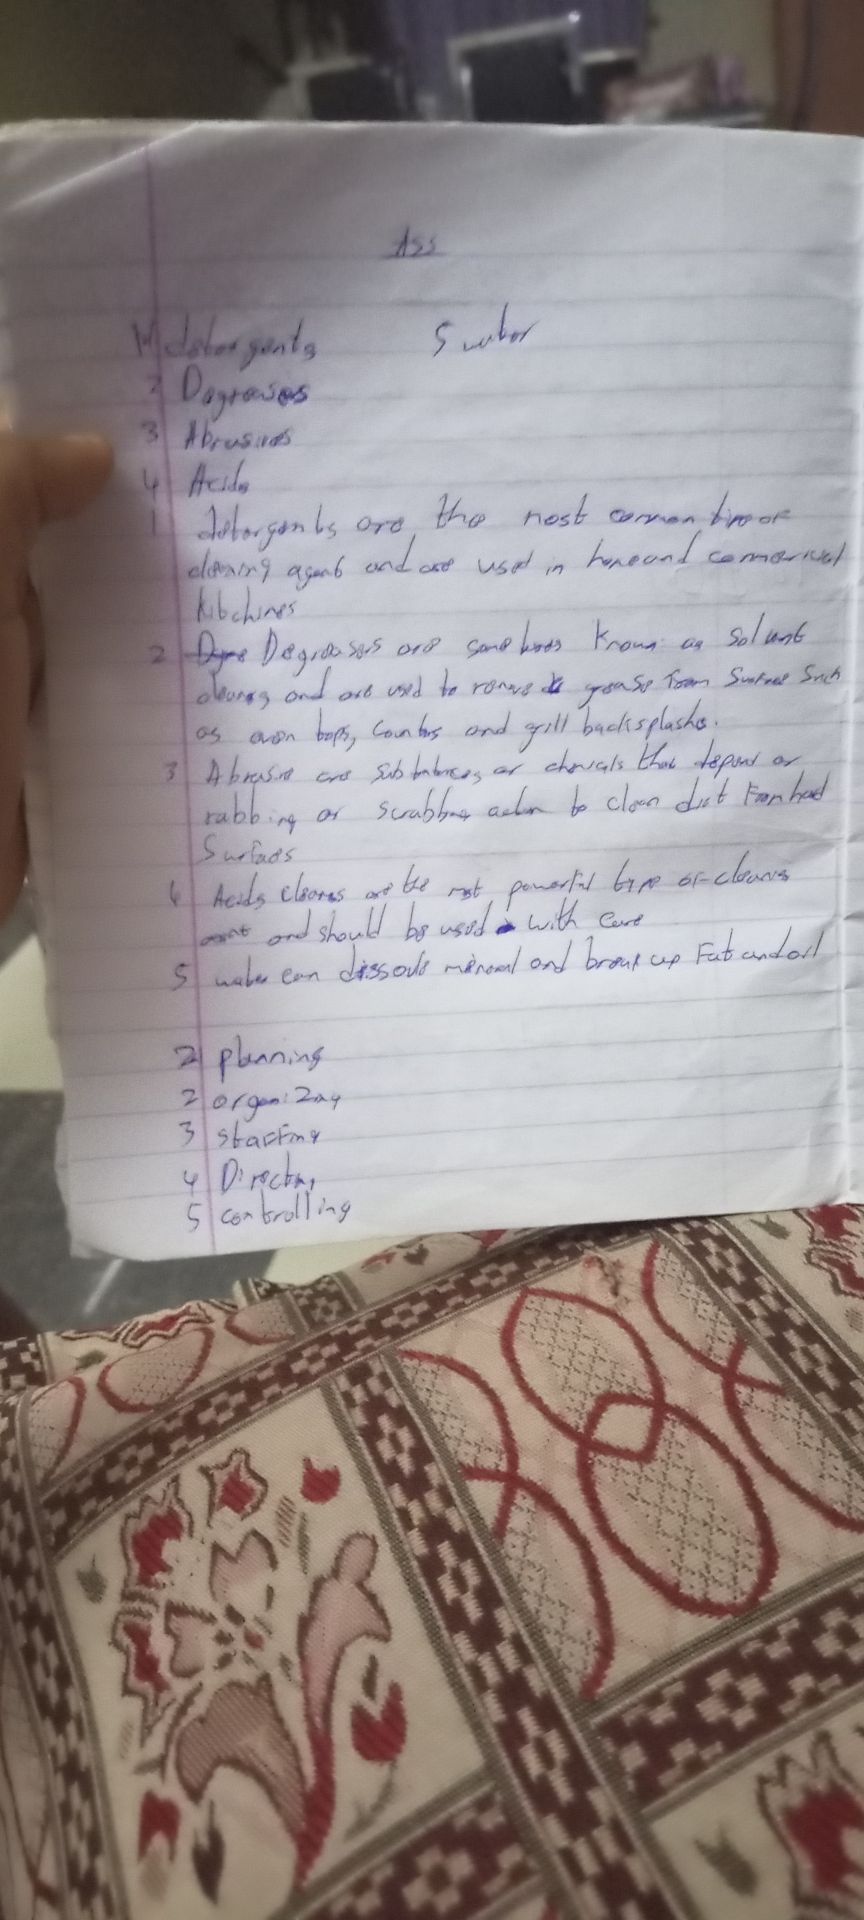 Ass
1) detergents 5 water
2 Degreases
3 Abrasives
4 Acids
1 detergents are the most common type of
cleaning agent and are used in home and commerical
kitchines
2 Degreasers are some times known as Solvent
cleaners and are used to remove grease from Surface Such
as oven tops, counters and grill backsplashe.
3 Abrasive are substances or chemicals that depend on
rubbing or scrubbing action to clean dirt from hard
Surfaces
4 Acids cleaners are the most powerful type of cleaning
and should be used with care
5 water can dissolve mineral and break up Fat and oil
2) planning
2 organizing
3 staffing
4 Directing
5 controlling